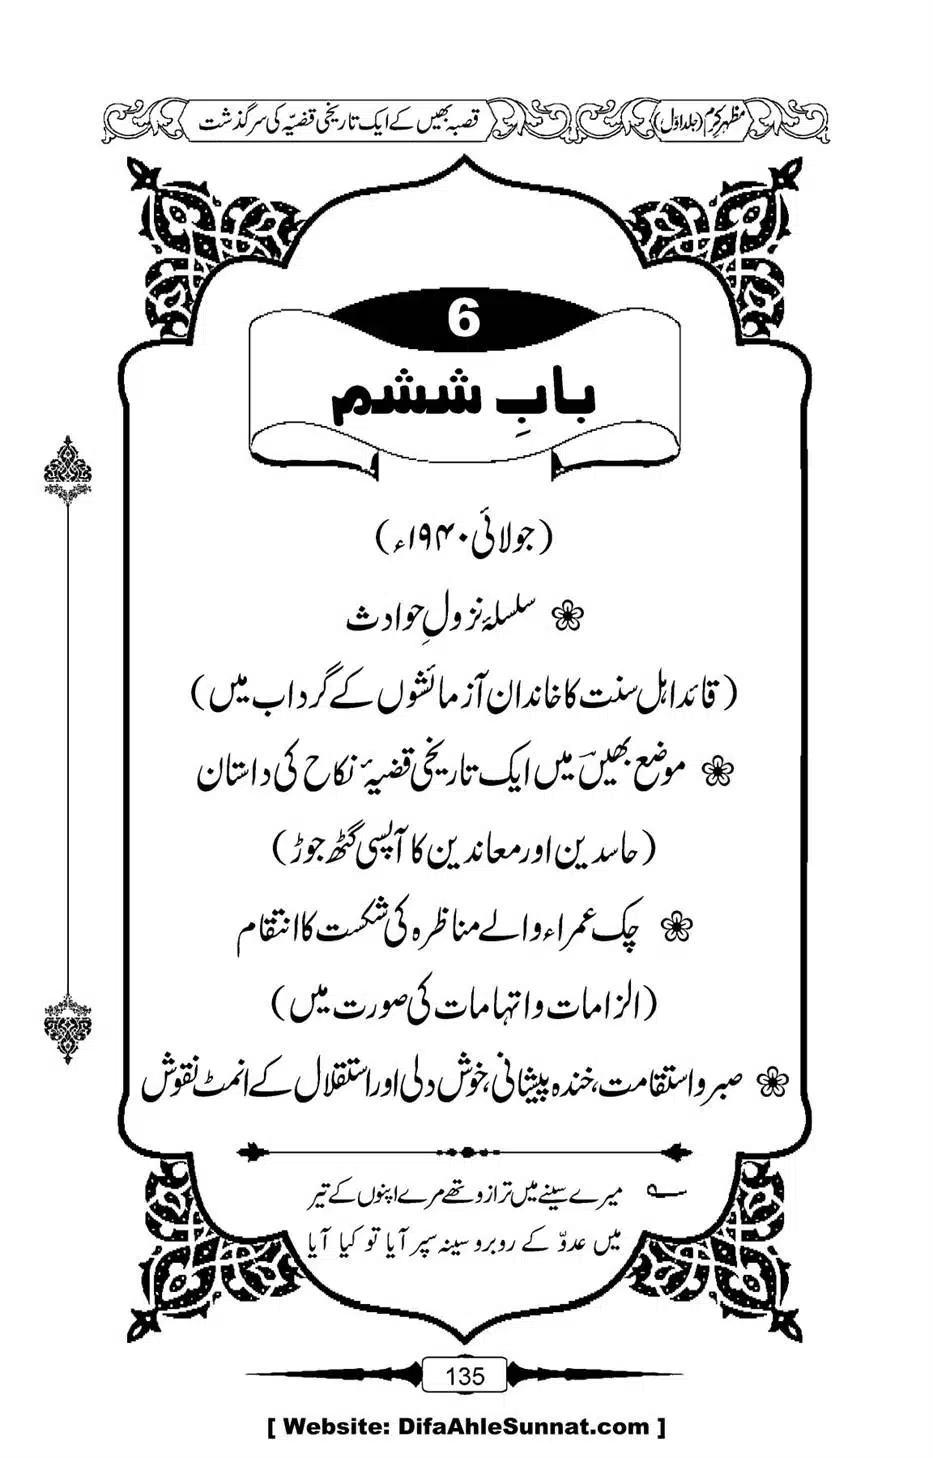 مظہرِ کرم (جلد اوّل)
قصبہ بھیں کے ایک تاریخی قضیّہ کی سرگذشت
6
بابِ ششم
(جولائی ۱۹۴۰ء)
سلسلۂ نزولِ حوادث
(قائد اہل سنت کا خاندان آزمائشوں کے گرداب میں)
موضع بھیں میں ایک تاریخی قضیۂ نکاح کی داستان
(حاسدین اور معاندین کا آپسی گٹھ جوڑ)
چک عمراء والے مناظرہ کی شکست کا انتقام
(الزامات و اتہامات کی صورت میں)
صبر و استقامت، خندہ پیشانی، خوش دلی اور استقلال کے انمٹ نقوش
میرے سینے میں ترازو تھے مرے اپنوں کے تیر
میں عدوّ کے روبرو سینہ سپر آیا تو کیا آیا
135
[ Website: DifaAhleSunnat.com ]